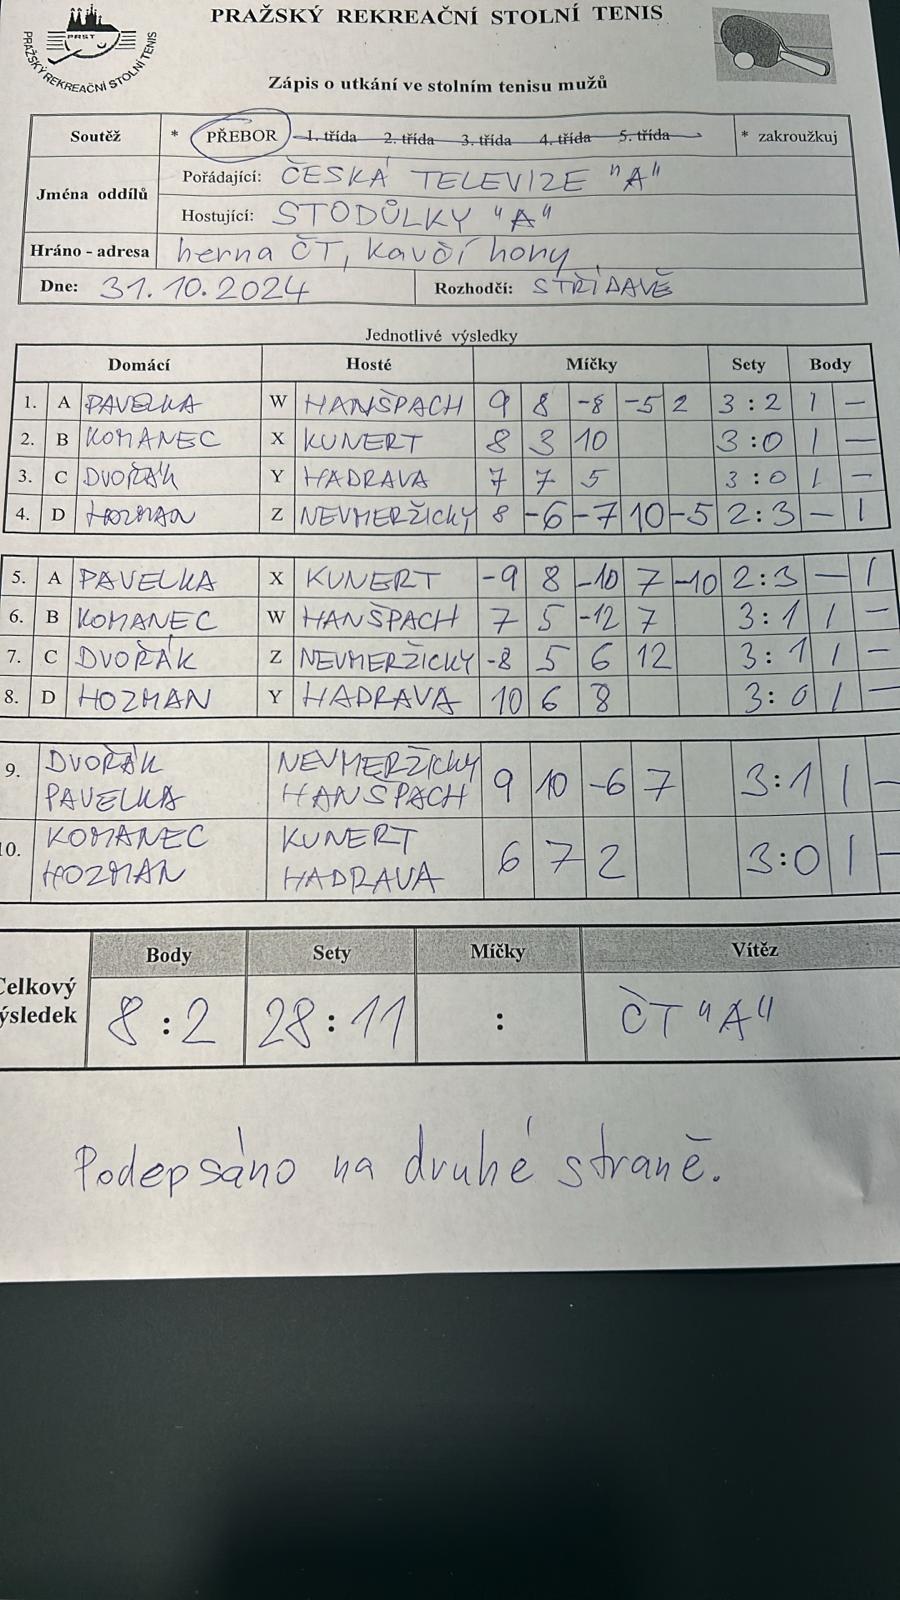 PRAŽSKÝ REKREAČNÍ STOLNÍ TENIS
PRST
PRAŽSKÝ REKREAČNÍ STOLNÍ TENIS
Zápis o utkání ve stolním tenisu mužů
Soutěž * PŘEBOR 1. třída 2. třída 3. třída 4. třída 5. třída * zakroužkuj
Jména oddílů
Pořádající: ČESKÁ TELEVIZE "A"
Hostující: STODŮLKY "A"
Hráno - adresa herna ČT, Kavčí hory
Dne: 31.10.2024 Rozhodčí: STŘÍDAVĚ
Jednotlivé výsledky
Domácí Hosté Míčky Sety Body
1. A PAVELKA W HANŠPACH 9 8 -8 -5 2 3:2 1 –
2. B KOMANEC X KUNERT 8 3 10 3:0 1 –
3. C DVOŘÁK Y HADRAVA 7 7 5 3:0 1 –
4. D HOZMAN Z NEVMERŽICKÝ 8 -6 -7 10 -5 2:3 – 1
5. A PAVELKA X KUNERT -9 8 -10 7 -10 2:3 – 1
6. B KOMANEC W HANŠPACH 7 5 -12 7 3:1 1 –
7. C DVOŘÁK Z NEVMERŽICKY -8 5 6 12 3:1 1 –
8. D HOZMAN Y HADRAVA 10 6 8 3:0 1 –
9. DVOŘÁK NEVMERŽICKY 9 10 -6 7 3:1 1 –
PAVELKA HANŠPACH
10. KOMANEC KUNERT 6 7 2 3:0 1 –
HOZMAN HADRAVA
Body Sety Míčky Vítěz
Celkový
výsledek 8:2 28:11 : ČT "A"
Podepsáno na druhé straně.